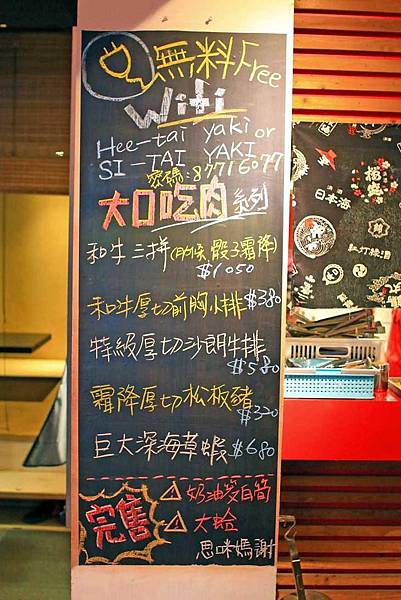 無料Free
Witi
Hee-tai yaki or
SI-TAI YAKI
密碼:87716077
大口吃肉系列
和牛三拼(肋條、骰子、霜降)
$1050
和牛厚切前胸小排$380
特級厚切沙朗牛排
$580
霜降厚切松板豬
$320
巨大深海草蝦$680
完售
奶油茭白筍
大蛤
思咪媽謝
日本海
紅灯綠酒